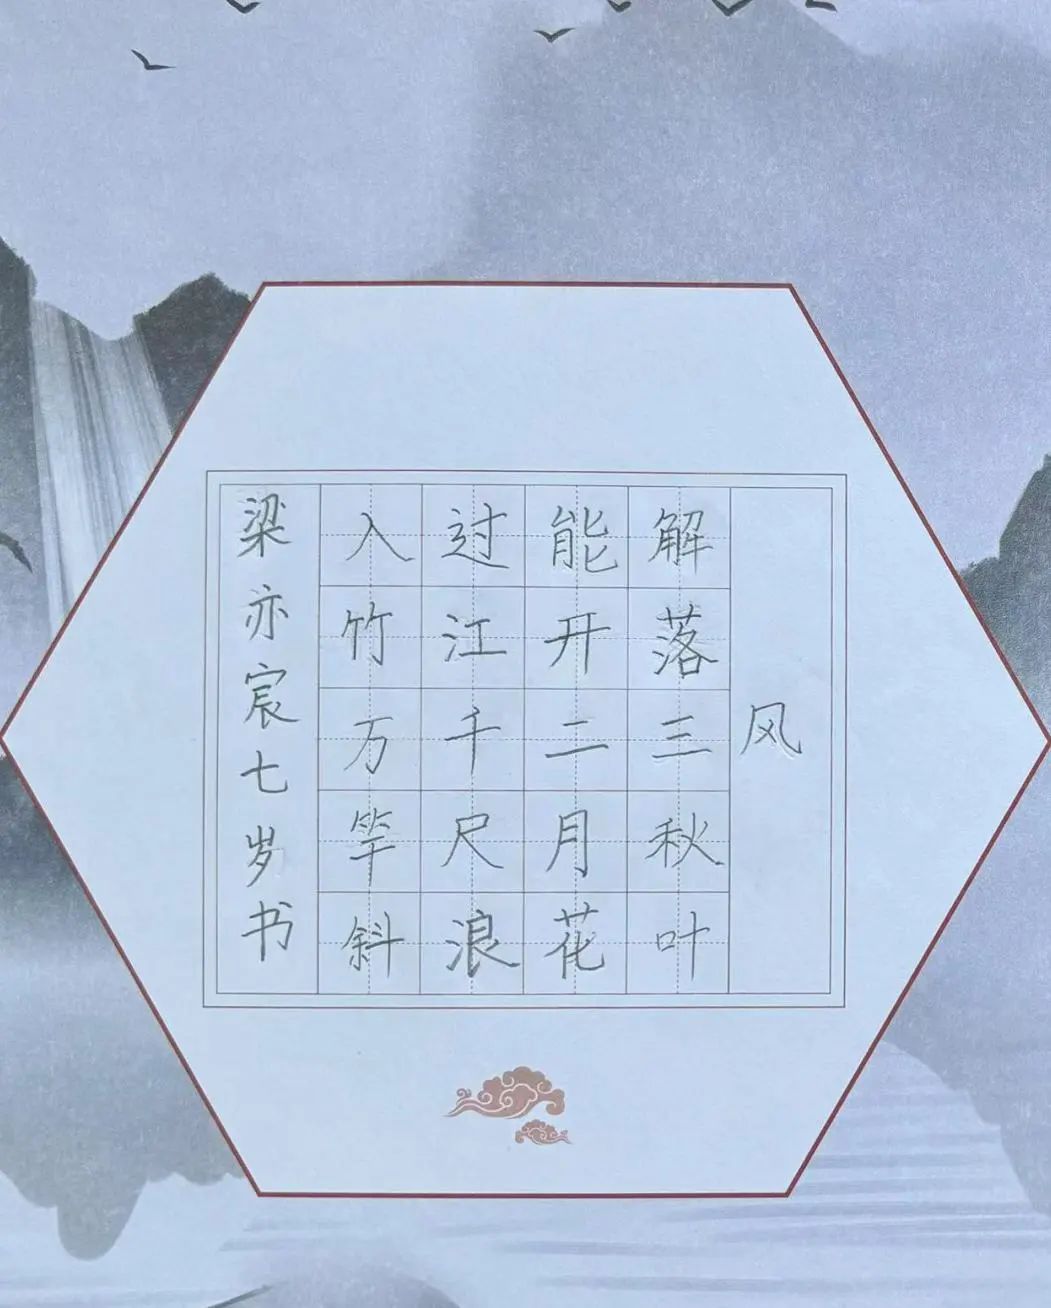 风
解落三秋叶
能开二月花
过江千尺浪
入竹万竿斜
梁亦宸七岁书